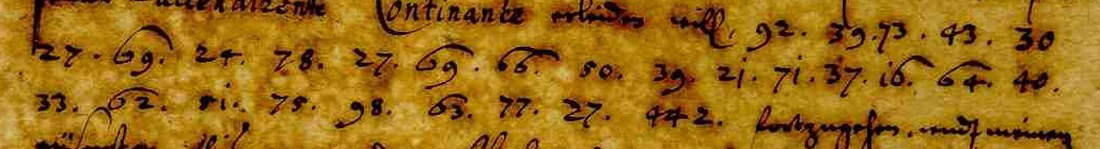 Continante erleiden will, 92. 39. 73. 43. 30
27. 69. 24. 78. 27. 69. 66. 50. 39. 21. 71. 37. 16. 64. 40.
33. 62. 51. 75. 98. 63. 77. 27. 442. fortzugehen, undt meinen